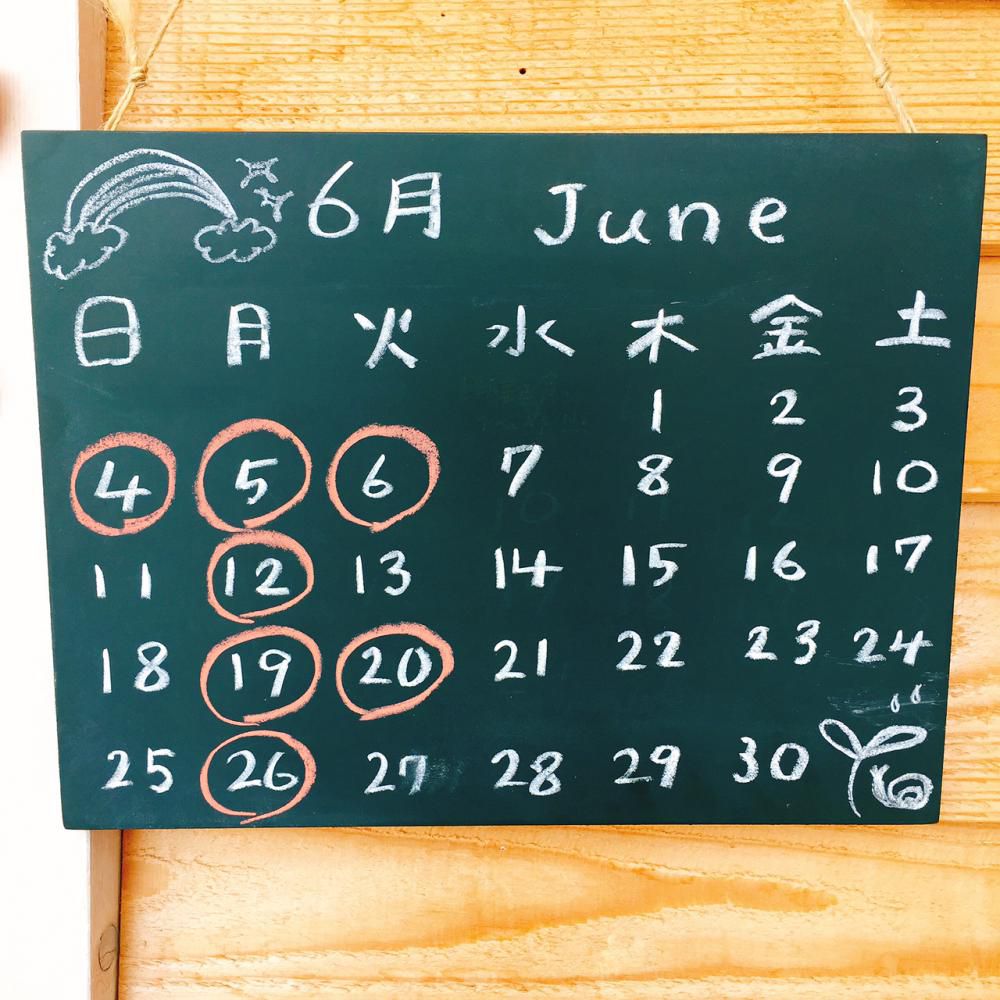 6月 June
日 月 火 水 木 金 土
1 2 3
4 5 6 7 8 9 10
11 12 13 14 15 16 17
18 19 20 21 22 23 24
25 26 27 28 29 30